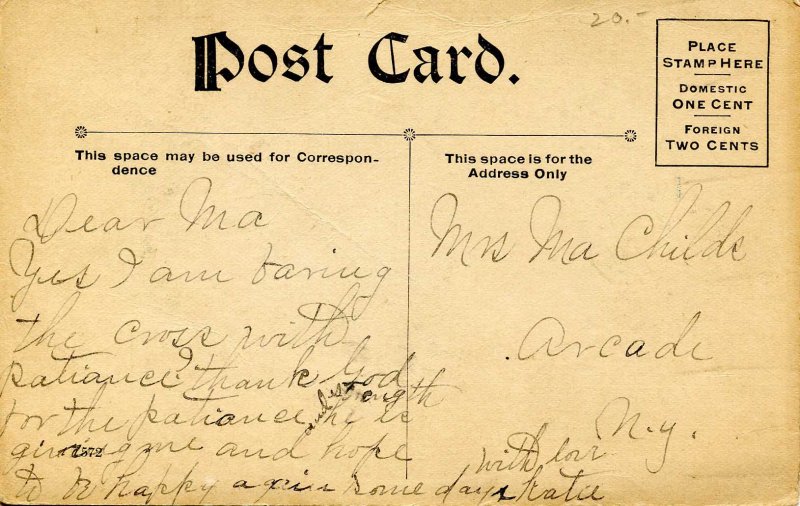 20.-
Post Card.
PLACE
STAMP HERE
DOMESTIC
ONE CENT
FOREIGN
TWO CENTS
This space may be used for Correspon-
dence
Dear Ma
Yes I am baring
the cross with
patiance I thank God
for the patiance and strength he is
giving me and hope
to be happy again some day
with love
Katie
7572
This space is for the
Address Only
Mrs Ma Childs
Arcade
N.Y.